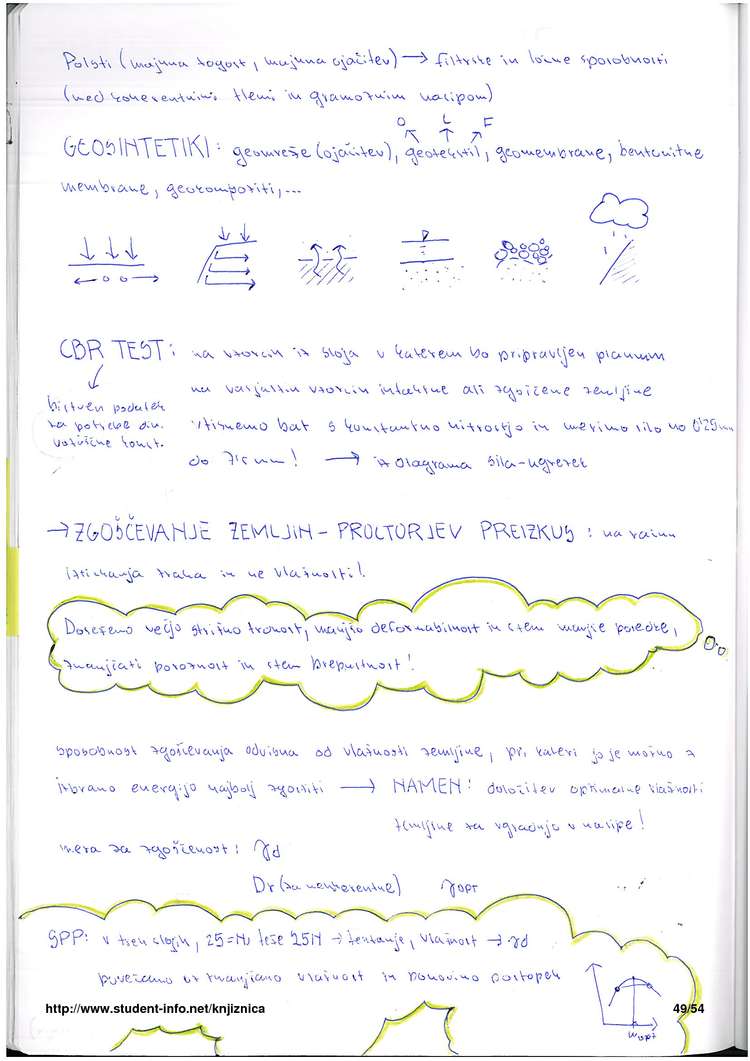 Polsti (majhna togost, majhna ojačitev) → filtrske in ločne sposobnosti
(med koherentnimi tlemi in gramoznim nasipom)
O L F
GEOSINTETIKI: geomreže (ojačitev), geotekstil, geomembrane, bentonitne
membrane, geokompoziti,...
CBR TEST: na vzorcih iz sloja v katerem bo pripravljen planum
na valjastih vzorcih intaktne ali zgoščene zemljine
bistven podatek
za potrebe dim.
voziščne konst.
vtisnemo bat s konstantno hitrostjo in merimo silo na 0'25mm
do 7'5 mm! → iz diagrama sila-ugrezek
→ ZGOŠČEVANJE ZEMLJIN - PROCTORJEV PREIZKUS: na račun
iztiskanja zraka in ne vlažnosti!
Dosežemo večjo strižno trdnost, manjšo deformabilnost in s tem manjše posedke,
zmanjšati poroznost in s tem prepustnost!
sposobnost zgoščevanja odvisna od vlažnosti zemljine, pri kateri jo je možno z
izbrano energijo najbolj zgostiti → NAMEN: določitev optimalne vlažnosti
zemljine za vgradnjo v nasipe!
mera za zgoščenost: γd
Dr (za nekoherentne) γopt
SPP: v treh slojih, 25 → tehtanje, vlažnost → γd
povečamo oz zmanjšamo vlažnost in ponovimo postopek
wopt
http://www.student-info.net/knjiznica
49/54